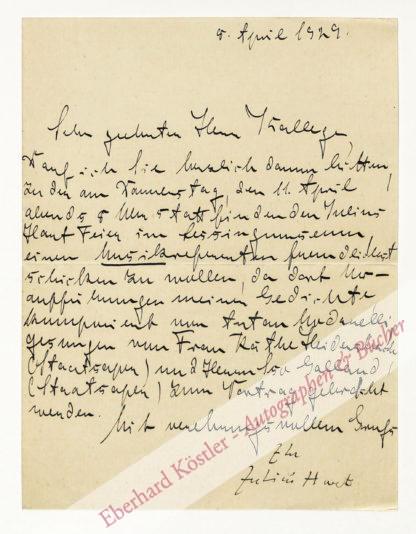 8. April 1929.
Sehr geehrter Herr Kollege,
Darf ich Sie herzlich darum bitten,
zu der am Donnerstag, den 11. April,
abends 8 Uhr stattfindenden Julius
Hart Feier im Lessingmuseum,
einen Musikreferenten freundlichst
schicken zu wollen, da dort Ur-
aufführungen meiner Gedichte
komponiert von
gesungen von Frau Käthe Heidersbach
(Staatsoper) und Herrn
(Staatsoper) zum Vortrag gebracht
werden.
Mit verehrungsvollem Gruß
Ihr
Julius Hart
Eberhard Köstler - Autographen & Bücher